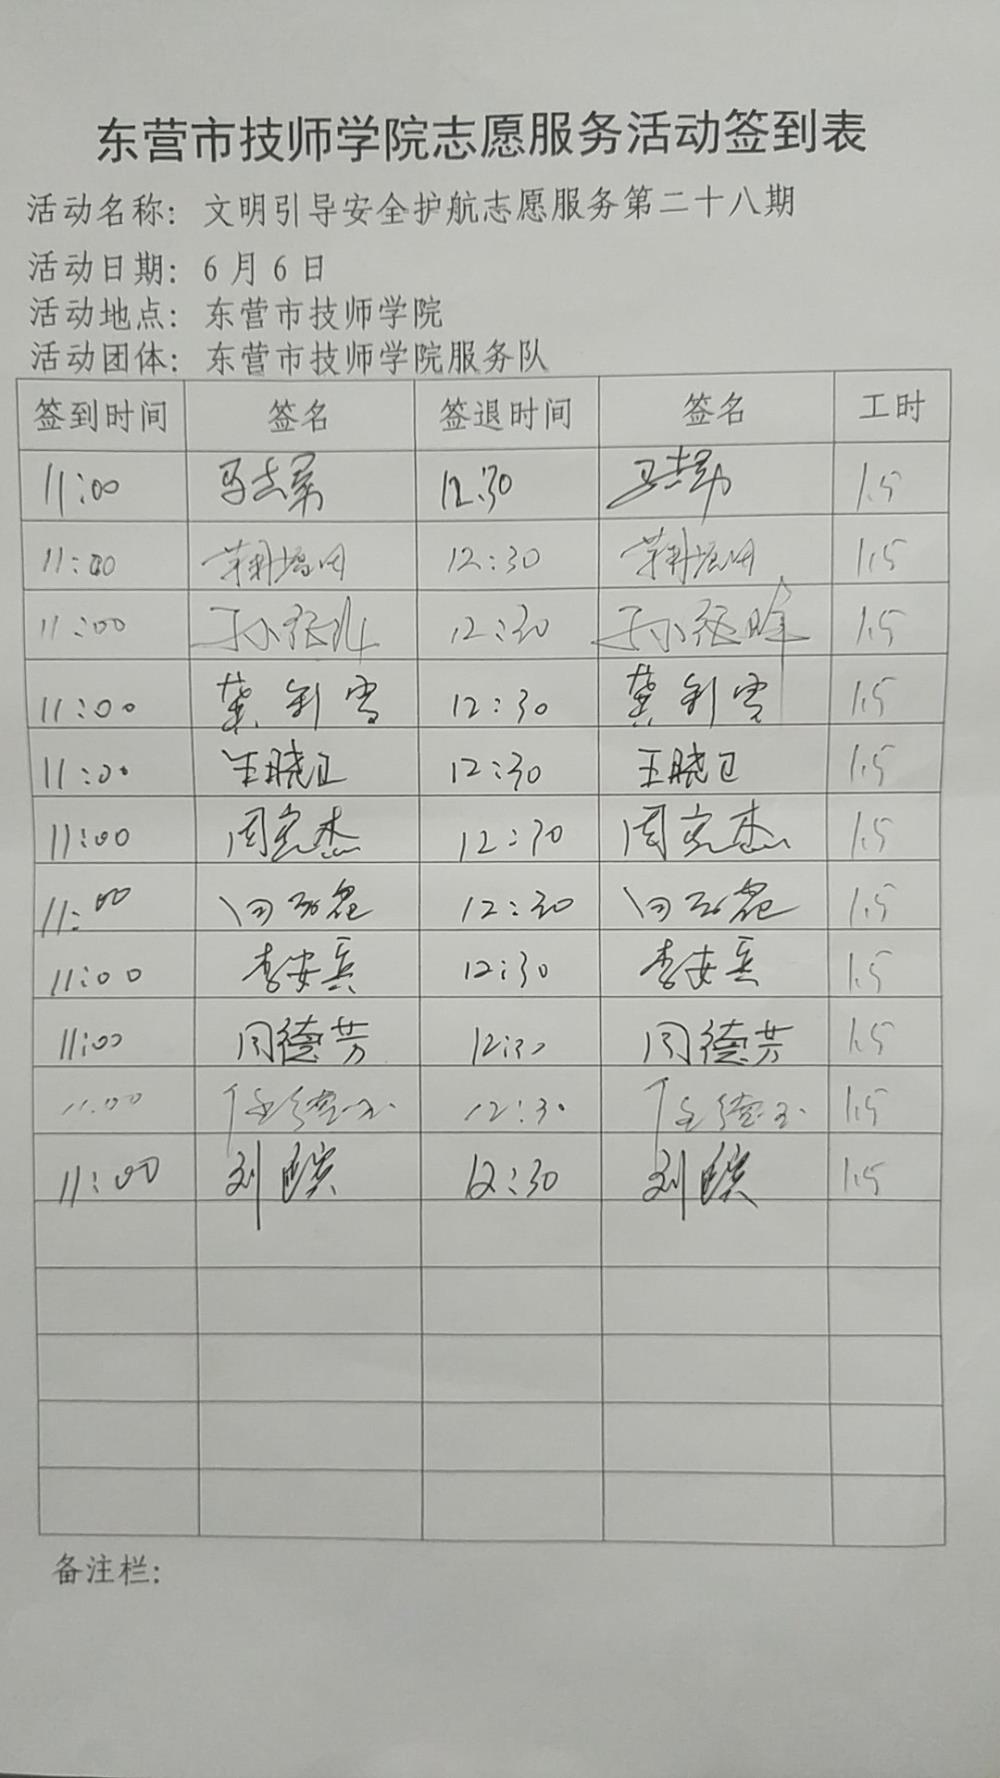 东营市技师学院志愿服务活动签到表
活动名称：文明引导安全护航志愿服务第二十八期
活动日期：6月6日
活动地点：东营市技师学院
活动团体：东营市技师学院服务队
签到时间 签名 签退时间 签名 工时
11:00 12:30 1.5
11:00 12:30 1.5
11:00 12:30 1.5
11:00 龚利雪 12:30 龚利雪 1.5
11:00 王晓卫 12:30 王晓卫 1.5
11:00 周宏杰 12:30 周宏杰 1.5
11:00 12:30 1.5
11:00 李安兵 12:30 李安兵 1.5
11:00 闫德芳 12:30 闫德芳 1.5
11:00 12:30 1.5
11:00 刘 12:30 刘 1.5
备注栏：